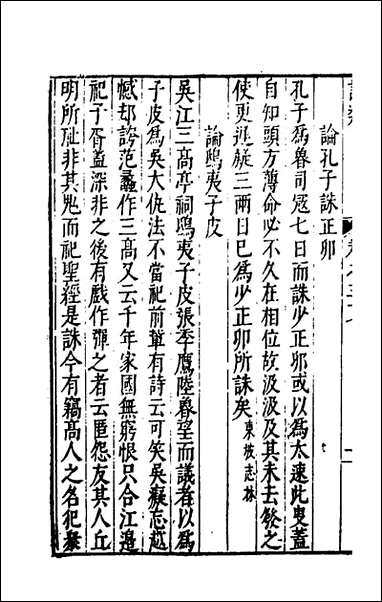 論孔子誅正卯
孔子為魯司冦七日而誅少正卯或以為太速此叟蓋
自知頭方薄命必不久在相位故汲汲及其未去發之
使更遲疑三兩日已為少正卯所誅矣東坡志林
論鴟夷子皮
吳江三高亭祠鴟夷子皮張季鷹陸魯望而議者以為
子皮為吳大仇法不當祀前軰有詩云可笑吳癡忘越
憾却誇范蠡作三高又云千年家國無窮恨只合江邉
祀子胥蓋深非之後有戲作彈之者云匿怨友其人丘
明所耻非其鬼而祀聖經是誅今有竊高人之名犯衆